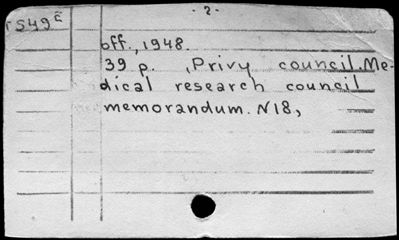 - 2 -
r S49c
off., 1948.
39 p. , Privy council. Me-
dical research council
memorandum. N18,